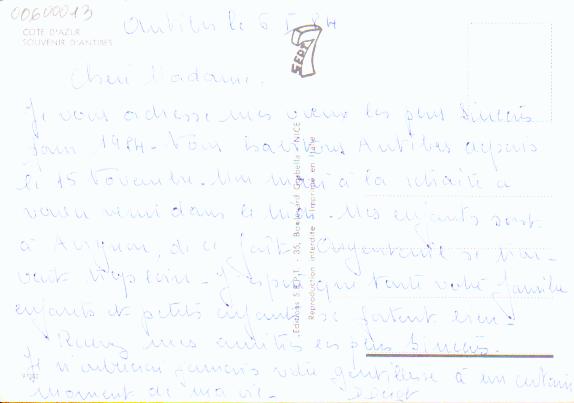 00600013
COTE D'AZUR
SOUVENIR D'ANTIBES
Antibes le 6 I 84
SEPT
Chère Madame.
Je vous adresse mes vœux les plus Sincères
pour 1984. Nous habitons Antibes depuis
le 15 Novembre. Mon mari à la retraite a
voulu venir dans le Midi. Mes enfants sont
à Avignon, de ce fait Argentan se trouvait
loin. J'espère que toute votre famille
enfants et petits enfants se portent bien.
Recevez mes amitiés les plus Sincères.
Je n'oublierai jamais votre gentillesse à un certain
moment de ma vie.
Editions S.E.P.T. - 35, Boulevard - NICE
Reproduction interdite - Imprimé en Italie